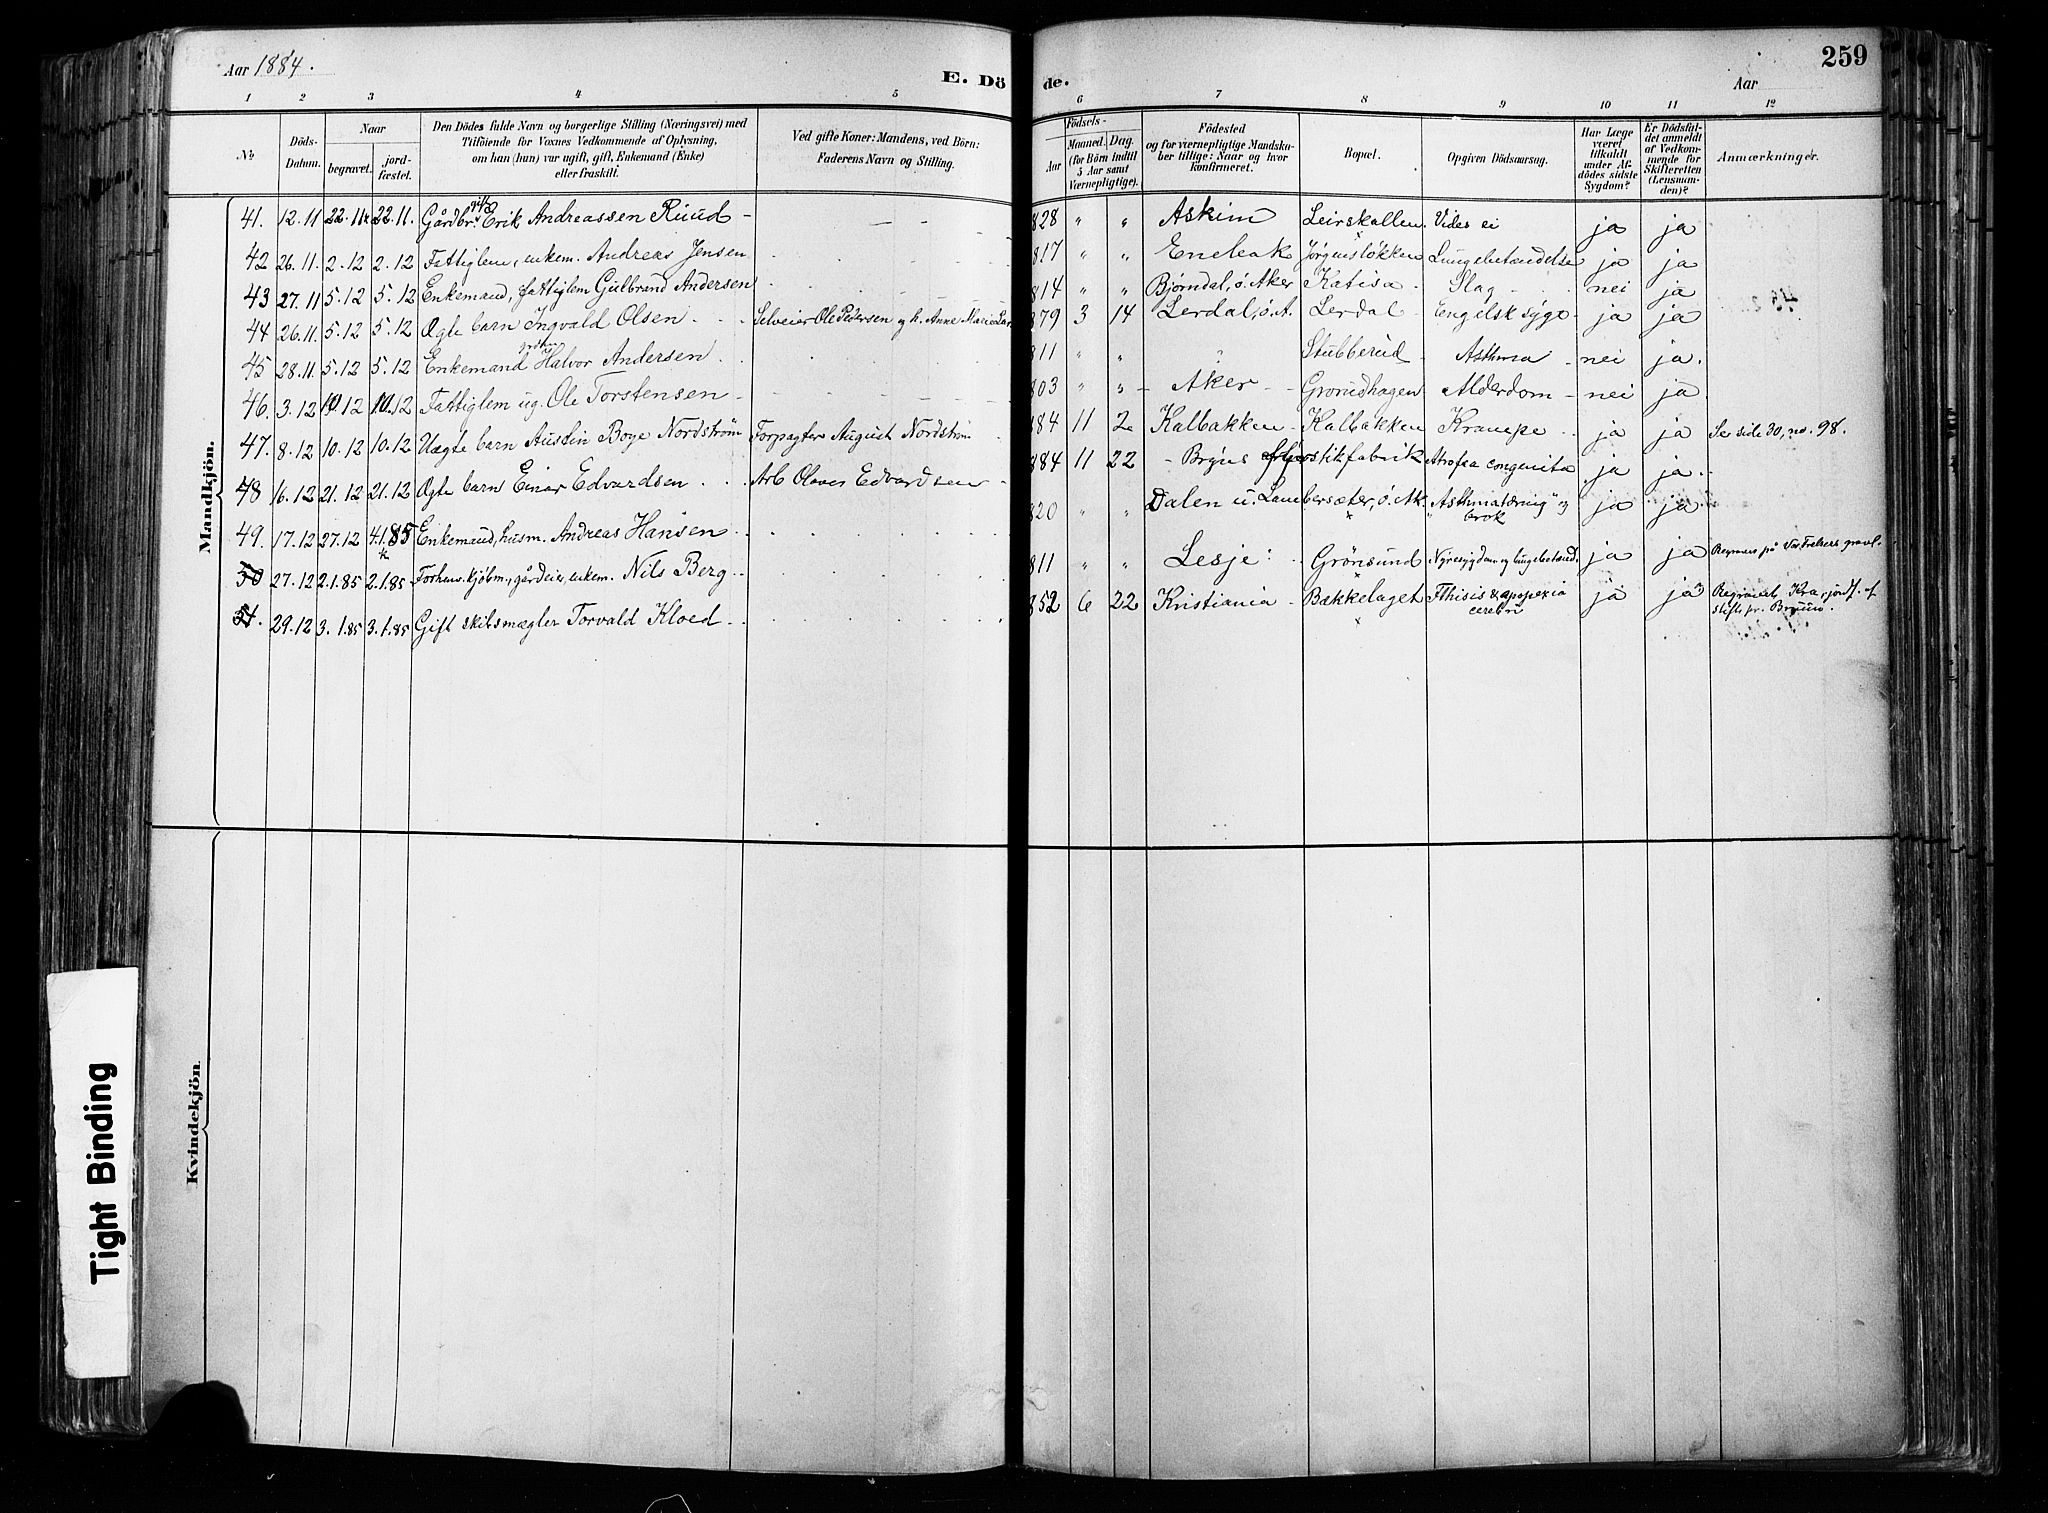 Aar 1884.
E. Dö
de.
Aar
259
1 2 3 4 5 6 7 8 9 10 11 12
No
Döds-Datum.
Naar
begravet.
jord-fæstet.
Den Dödes fulde Navn og borgerlige Stilling (Næringsvei) med
Tilföiende for Voxnes Vedkommende af Oplysning,
om han (hun) var ugift, gift, Enkemand (Enke)
eller fraskilt.
Ved gifte Koner: Mandens, ved Börn:
Faderens Navn og Stilling.
Födsels-
Aar
Maaned. Dag.
(for Börn indtil
5 Aar samt
Værnepligtige).
Födested
og for værnepligtige Mandska-
ber tillige: Naar og hvor
konfirmeret.
Bopæl.
Opgiven Dödsaarsag.
Har Læge
været
tilkaldt
under Af-
dödes sidste
Sygdom?
Er Dödsfal-
det anmeldt
af Vedkom-
mende for
Skifteretten
(Lensman-
den)?
Anmærkninger.
Mandkjön.
41. 12.11 22.11 22.11. Gårdbr. Erik Andreassen Ruud - 828 " " Askim Leirskallen. Vides ei ja ja
42 26.11. 2.12 2.12 Fattiglem, enkem. Andreas Jensen 817 " " Enebak Jørgensløkken Lungebetændelse ja ja
43 27.11 5.12 5.12 Enkemand, fattiglem Gulbrand Andersen 814 " " Bjørndal, ö. Aker Katisa Slag nei ja
44 26.11. 5.12 5.12 Ægte barn Ingvald Olsen Selveier Ole Pedersen og h. Anne Marie 879 3 14 Lerdal, ö. A. Lerdal Engelsk syge ja ja
45 28.11. 5.12 5.12 Enkemand Halvor Andersen 811 " " " Stubberud Asthma nei ja.
46. 3.12 10.12 10.12 Fattiglem ug. Ole Torstensen 803 " " Aker Grorudhagen Alderdom nei ja
47. 8.12 10.12 10.12 Uægte barn Austin Boye Nordström Forpagter August Nordström 884 11 2 Kalbakken Kalbakken Krampe ja ja Se side 30, no. 98.
48 16.12 21.12 21.12 Ægte barn Einar Edvardsen Arb. Olaves Edvardsen 884 11 22 Bryns fyrstikfabrik Atrofia congenita ja ja.
49. 17.12 27.12 4.1.85 Enkemand, husm. Andreas Hansen 820 " " Dalen u. Lambersæter, ö. Ak. "Asthmatæring" og brok ja ja.
50 27.12 2.1.85 2.1.85 Forhenv. kjøbm., gårdeier, enkem. Nils Berg 811 " " Lesje Grönsund Nyresygdom og lungebetænd. ja ja Begraves på Vor Frelsers gravl.
51. 29.12 3.1.85 3.1.85 Gift skibsmægler Torvald Kloed 852 6 22 Kristiania Bækkelaget Fthisis & apoplexia cerebri ja ja Begravet Kra., jordf. af stiftspr. Bruun.
Kvindekjön
Tight Binding